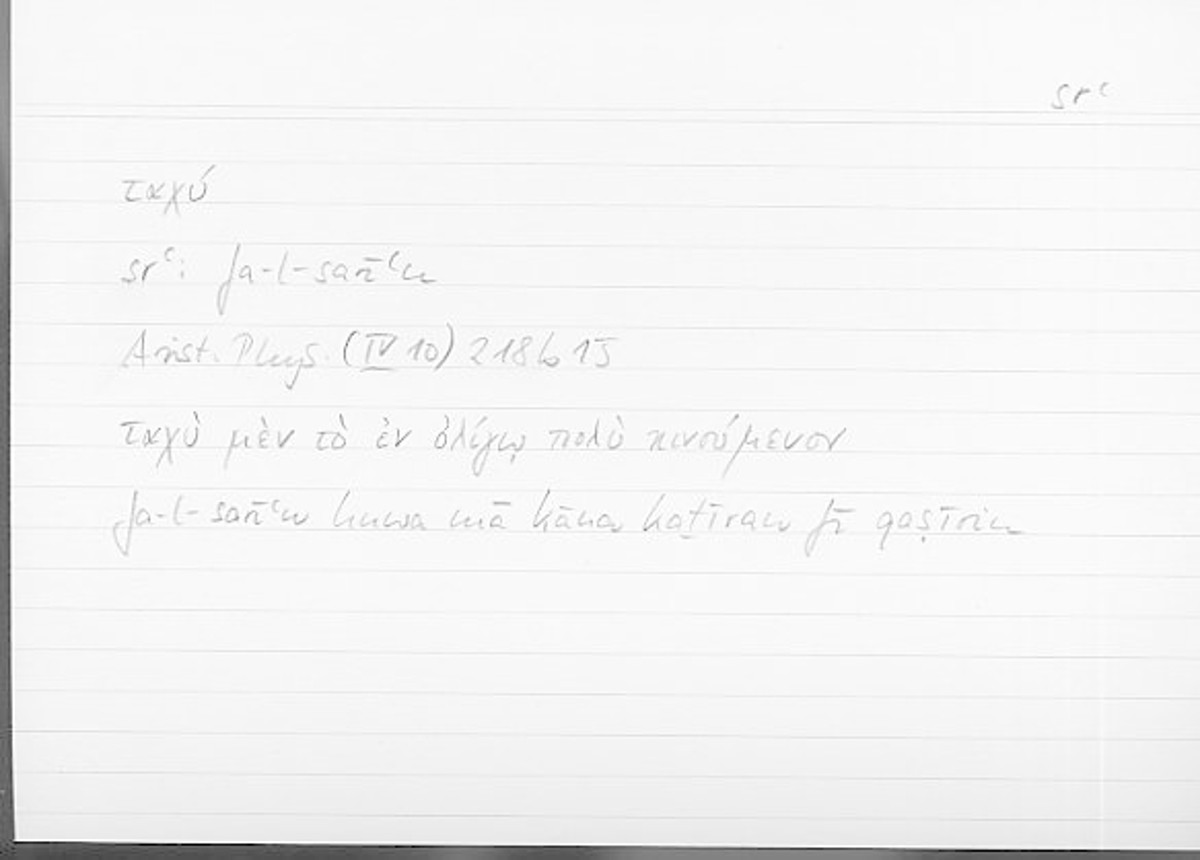 srʿ
ταχύ
srʿ: fa-l-sarīʿu
Arist. Phys. (IV 10) 218b15
ταχὺ μὲν τὸ ἐν ὀλίγῳ πολὺ κινούμενον
fa-l-sarīʿu huwa mā kāna kaṯīran fī qaṣīrin